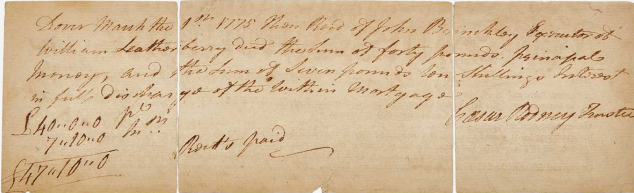 Dover March the 1st 1775 then Recd of John Brinckley Executor of
William Leatherberry decd the sum of forty pounds principal
money, and the sum of seven pounds ten shillings Interest
in full discharge of the within Mortgage
£40〃0〃0 pr.
7〃10〃0 Int.
£47〃10〃0
Caesar Rodney Trustee
paid